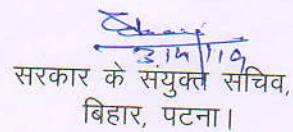 3.12.19
सरकार के संयुक्त सचिव,
बिहार, पटना।